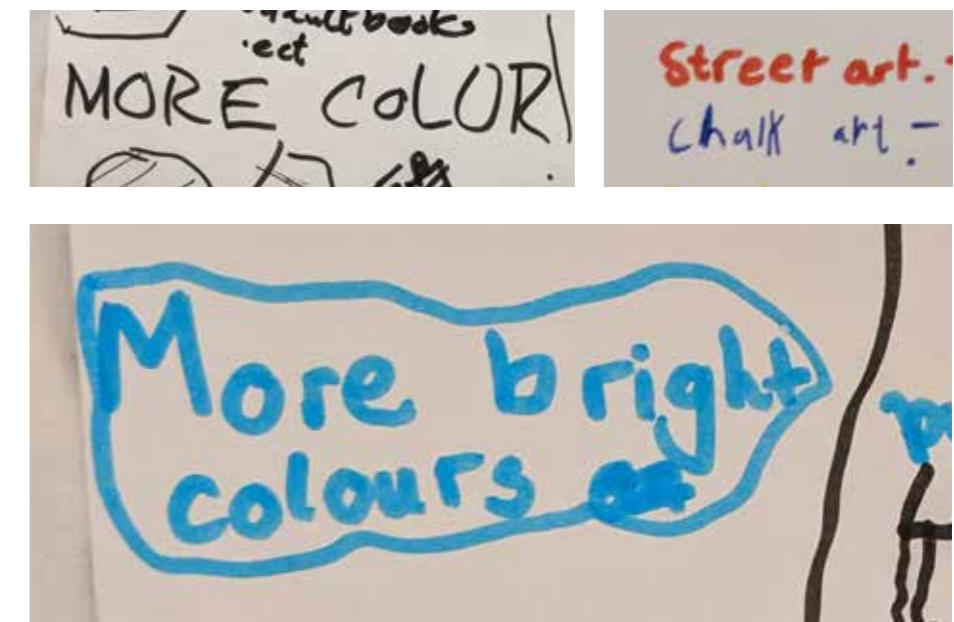 books
MORE COLOR
Street art.
Chalk art -
More bright
colours